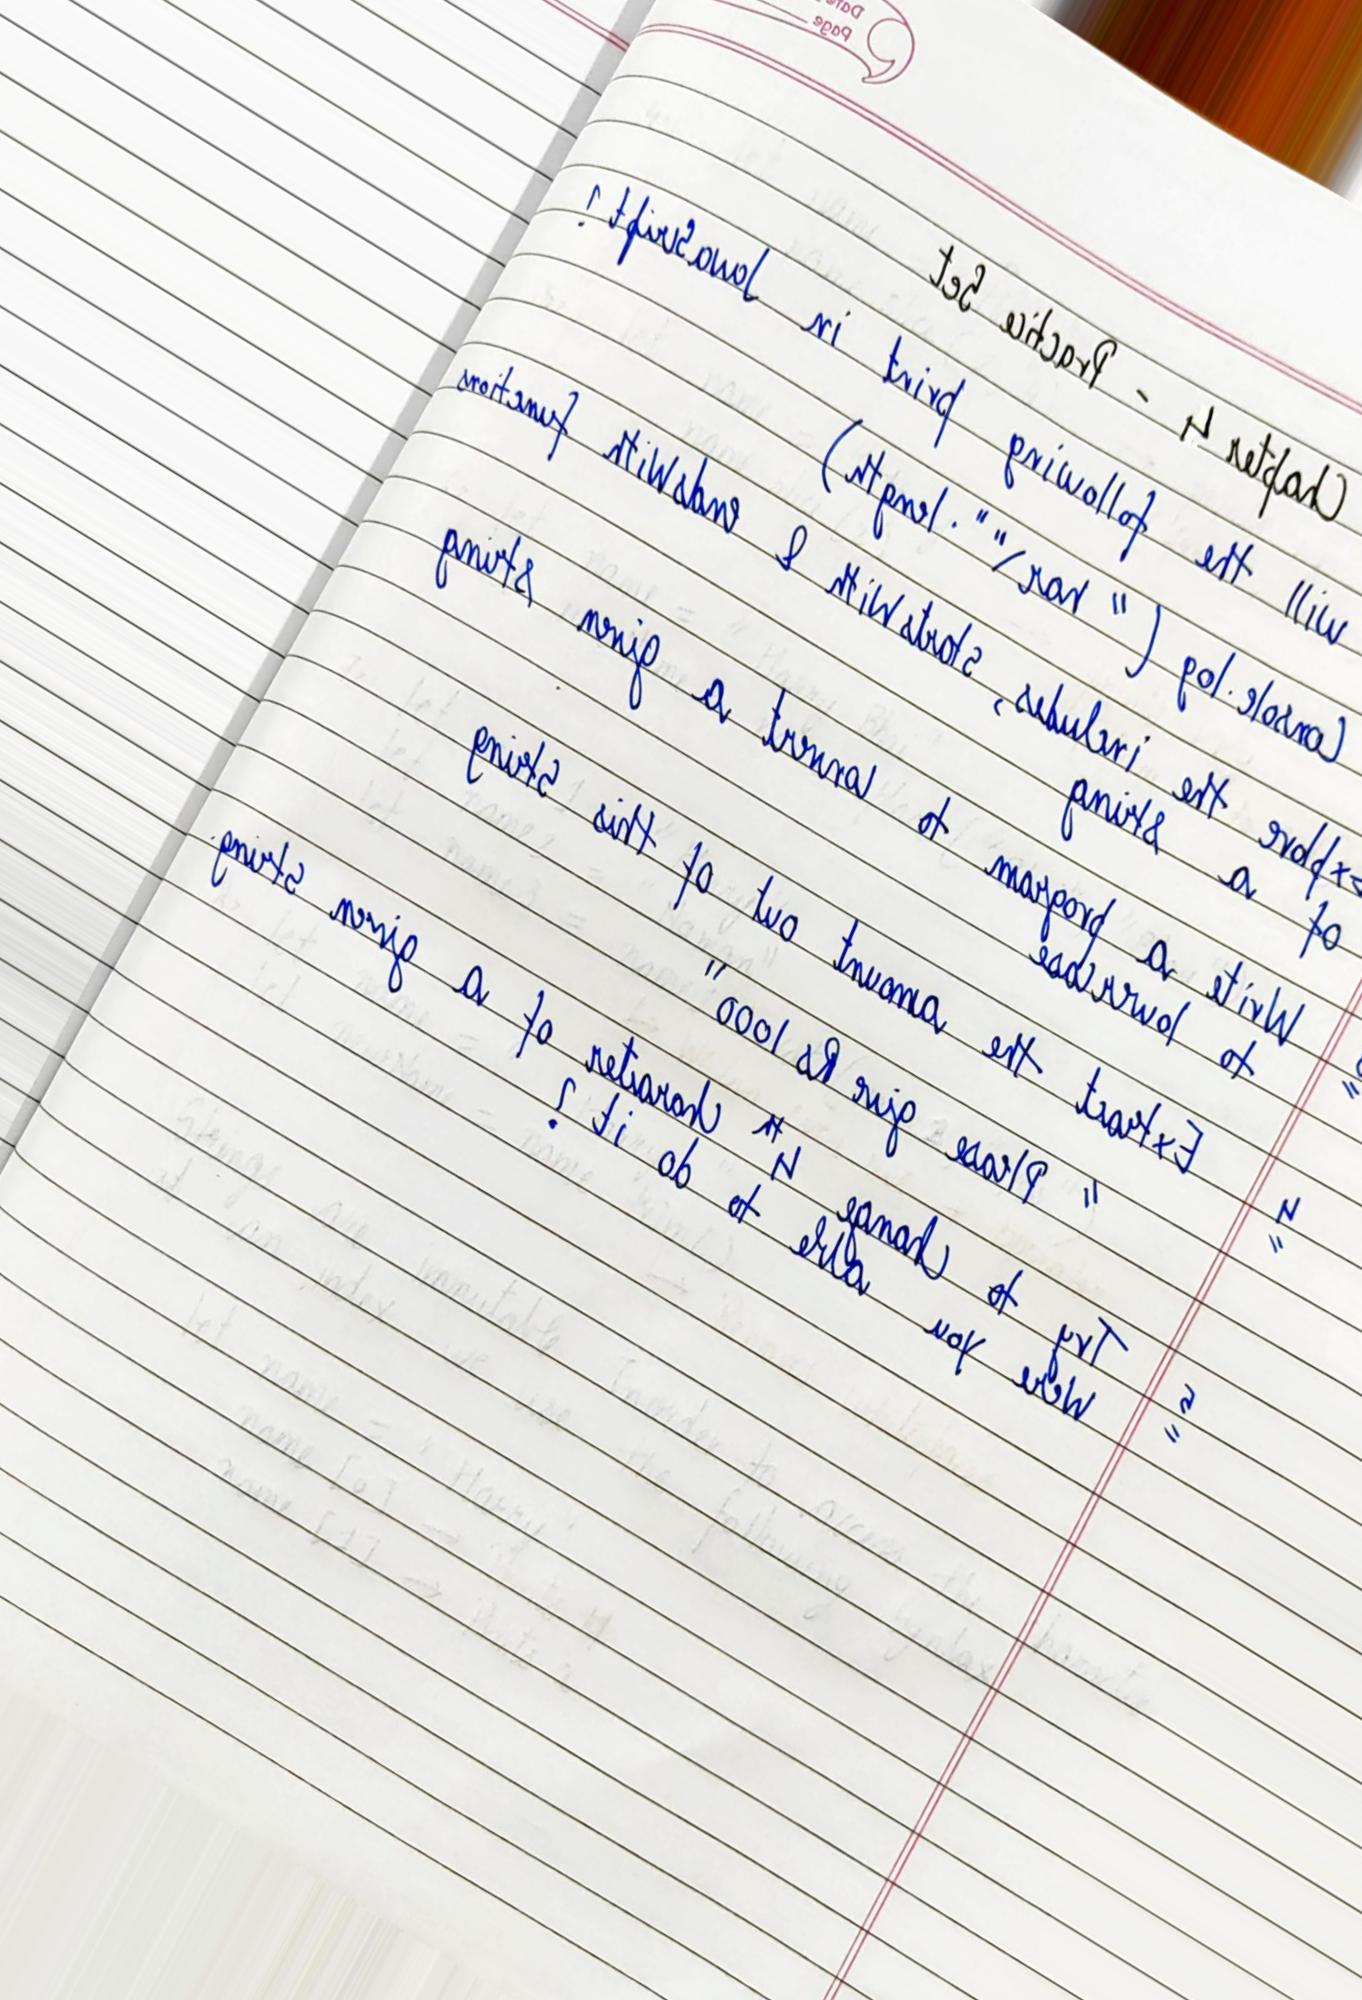 Date
Page
Chapter 4 - Practice Set
will the following print in JavaScript?
Console.log ("har\"".length)
explore the includes, startsWith & endsWith functions
of a string
Write a program to convert a given string
to lowercase
4" Extract the amount out of this string
"Please give Rs 1000"
5" Try to change 4th character of a given string.
Were you able to do it?